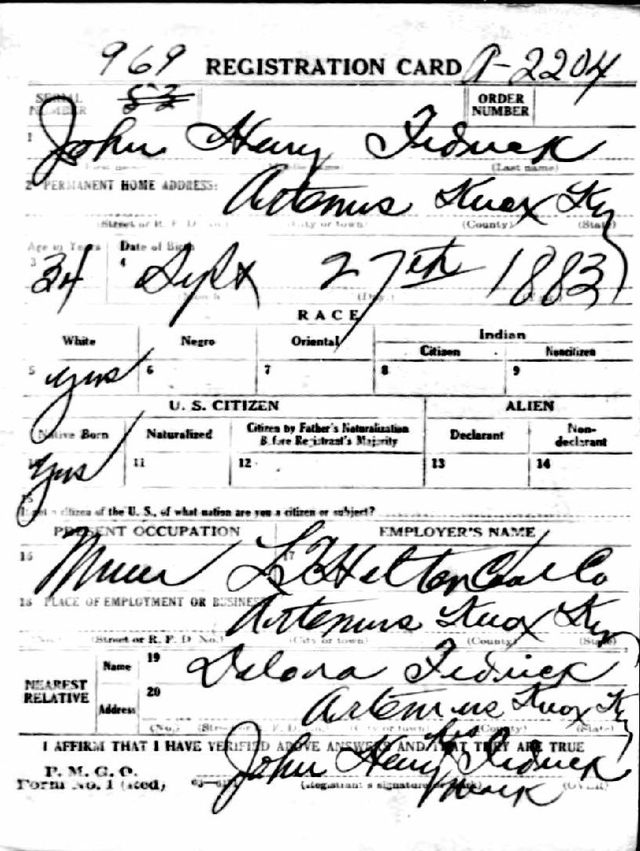 969 REGISTRATION CARD A-2204
SERIAL NUMBER 52 ORDER NUMBER
1 John Henry Fedrick
(First name) (Middle name) (Last name)
2 PERMANENT HOME ADDRESS:
Artemus Knox Ky
(Street or R. F. D. No.) (City or town) (County) (State)
Age in Years Date of Birth
3 34 4 Sept 27th 1883
(Month) (Day) (Year)
RACE
White Negro Oriental Indian
Citizen Noncitizen
5 yes 6 7 8 9
U. S. CITIZEN ALIEN
Native Born Naturalized Citizen by Father's Naturalization Before Registrant's Majority Declarant Non-declarant
10 yes 11 12 13 14
15
If not a citizen of the U. S., of what nation are you a citizen or subject?
PRESENT OCCUPATION EMPLOYER'S NAME
16 Miner 17 Helton Coal Co
18 PLACE OF EMPLOYMENT OR BUSINESS
Artemus Knox Ky
(No.) (Street or R. F. D. No.) (City or town) (County) (State)
NEAREST RELATIVE Name 19 Delora Fedrick
Address 20 Artemus Knox Ky
(No.) (Street or R. F. D. No.) (City or town) (County) (State)
I AFFIRM THAT I HAVE VERIFIED ABOVE ANSWERS AND THAT THEY ARE TRUE
P. M. G. O.
Form No. 1 (Red) John Henry his mark Fedrick
(Registrant's signature or mark) (OVER)